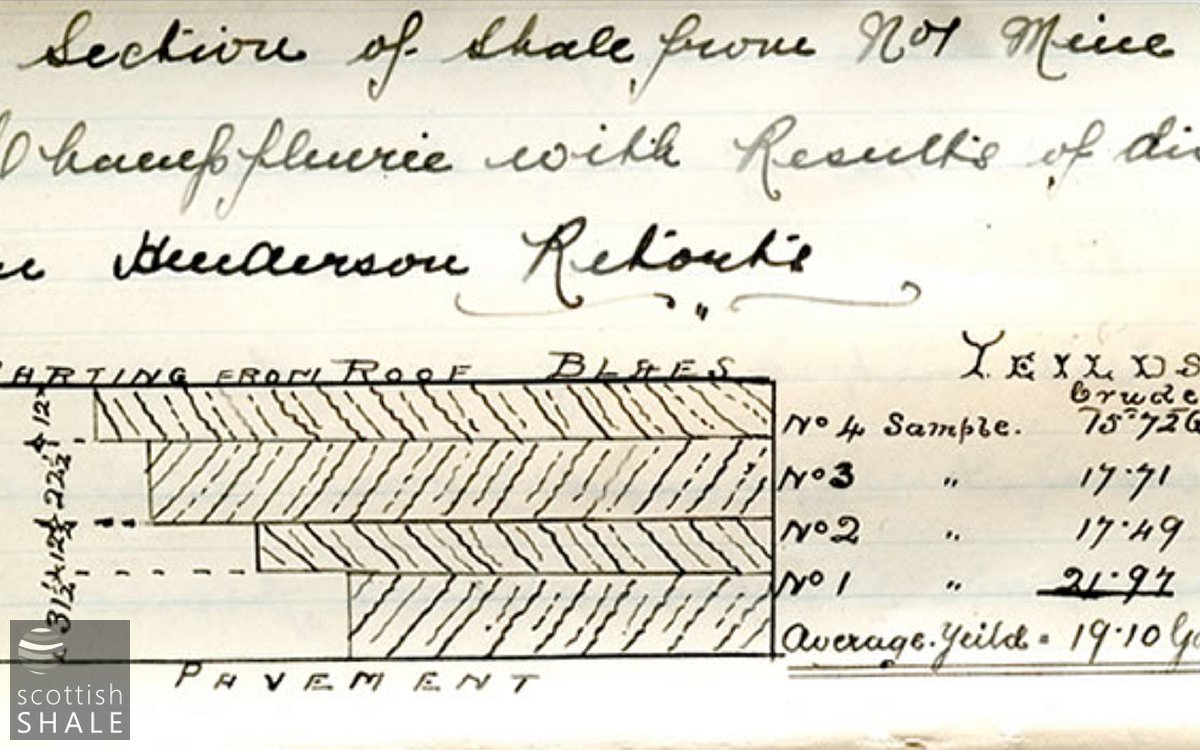 Section of Shale from No1 Mine
Champfleurie with Results of dis
Henderson Retorts
"
PARTING FROM ROOF BLAES
YEILDS
Crude
12" No 4 Sample. 15·72 G
22½ No 3 " 17·71
12½ No 2 " 17·49
31½ No 1 " 21·97
Average Yeild = 19·10 G
PAVEMENT
scottish
SHALE